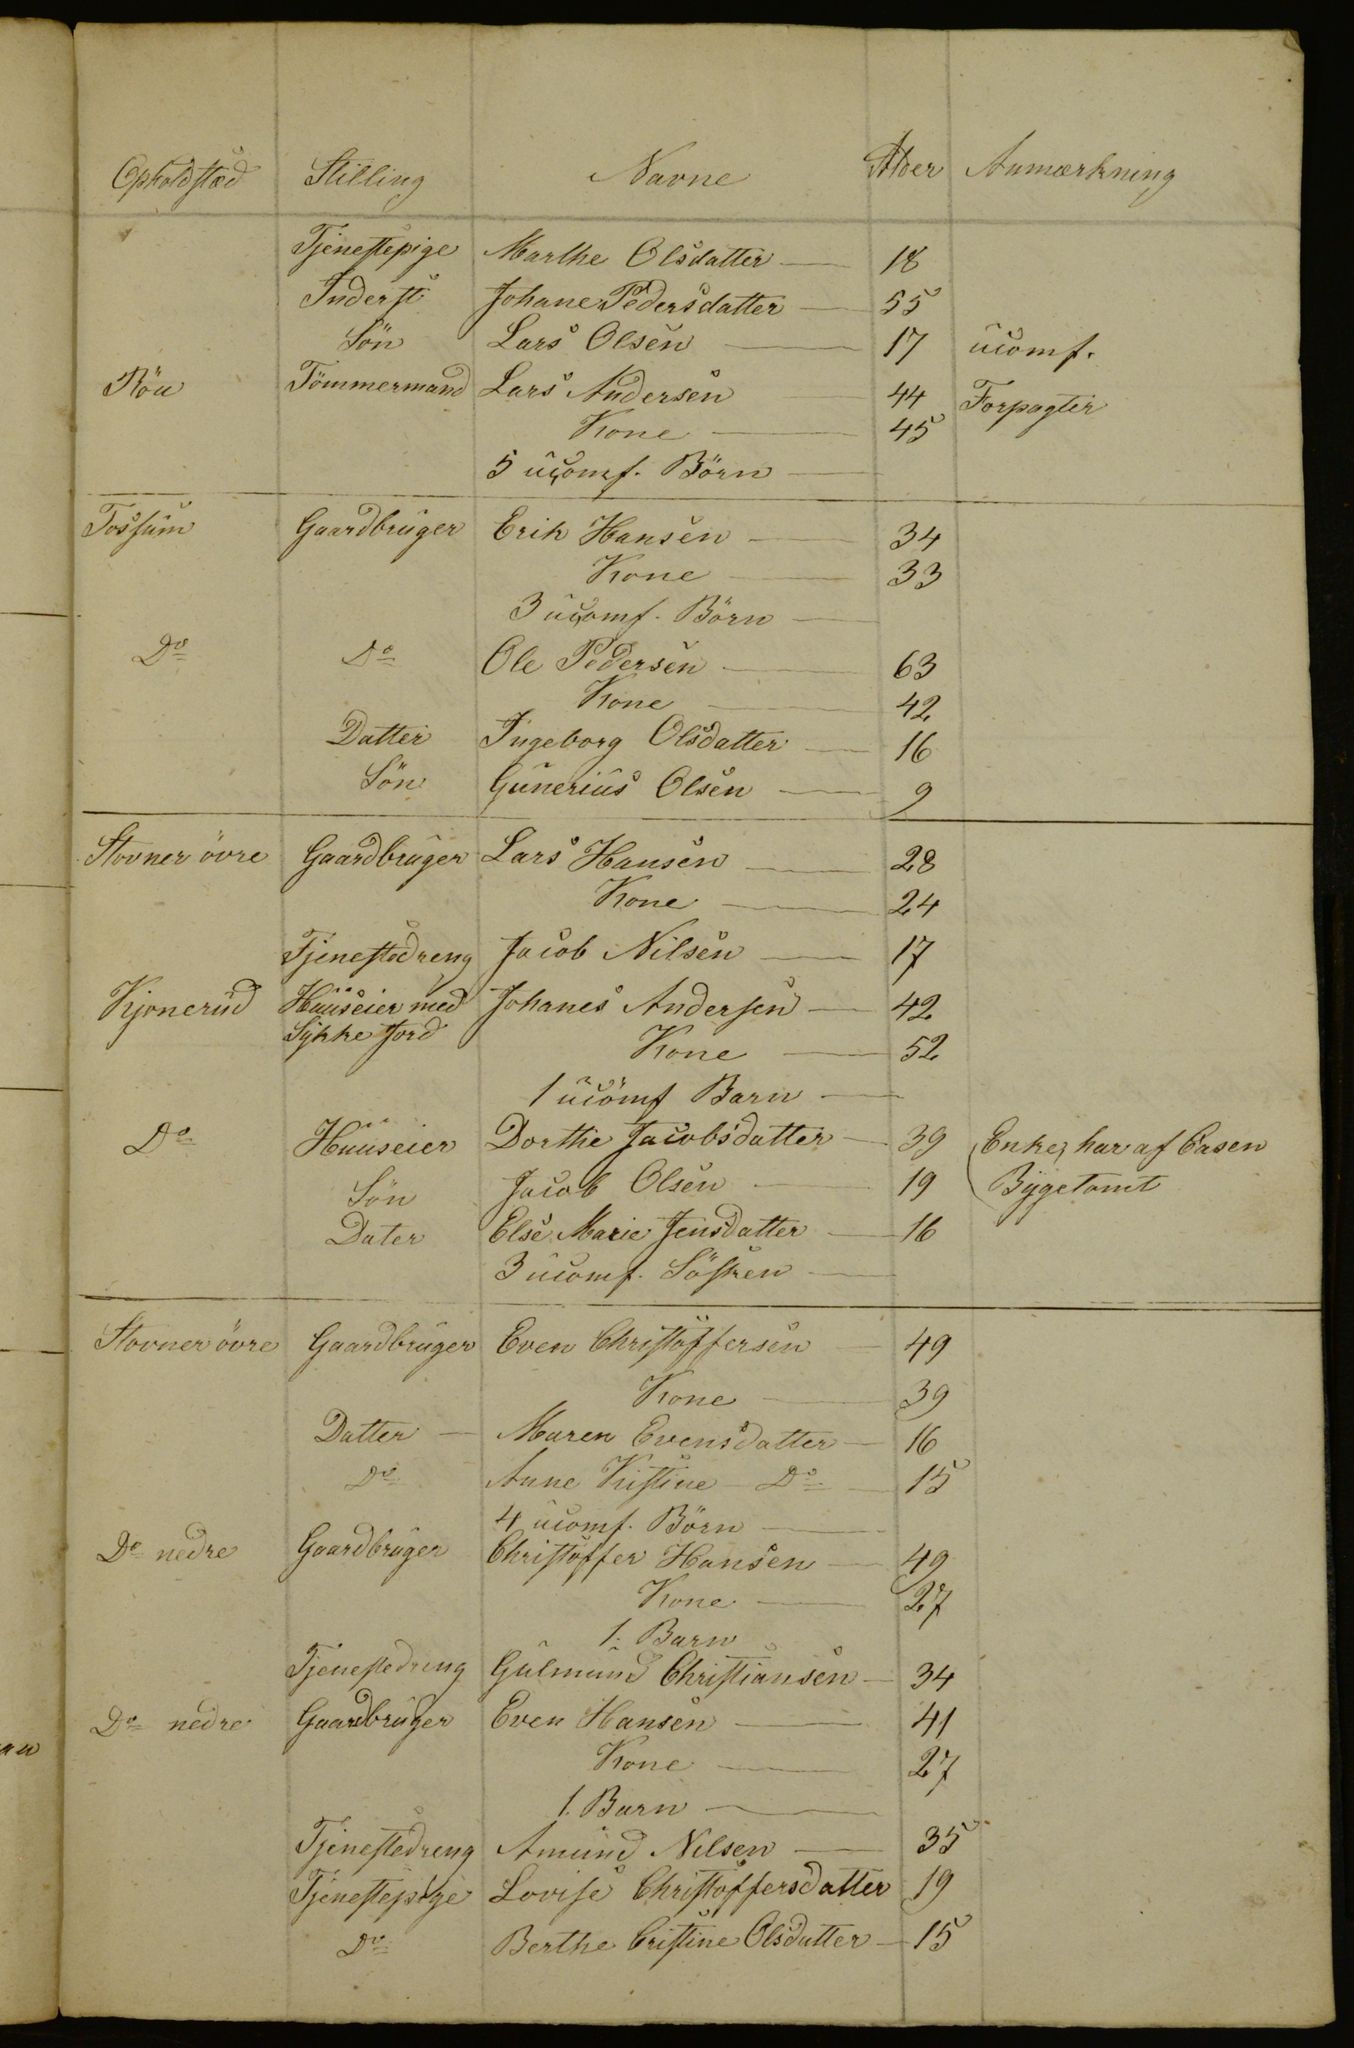 Opholdstæd Stilling Navne Alder Anmærkning
Tjenestepige Marthe Olsdatter — 18
Inderst Johane Pedersdatter — 55
Sön Lars Olsen — 17 ucomf.
Röa Tömmermand Lars Andersen 44 Forpagter
Kone — 45
5 ucomf. Börn —
Fossum Gaardbruger Erik Hansen — 34
Kone — 33
3 ucomf. Börn —
Do Do Ole Pedersen — 63
Kone — 42
Datter Ingeborg Olsdatter — 16
Sön Gunerius Olsen — 9
Stovner övre Gaardbruger Lars Hansen — 28
Kone — 24
Tjenestedreng Jacob Nilsen — 17
Kjonerud Huuseier med Johanes Andersen — 42
Sykke Jord Kone — 52
1 ucomf Barn —
Do Huuseier Dorthe Jacobsdatter — 39 Enke, har af Casen
Sön Jacob Olsen — 19 Bygetomt
Dater Else Marie Jensdatter — 16
3 ucomf. Sösken —
Stovner övre Gaardbruger Even Christoffersen — 49
Kone — 39
Datter — Maren Evensdatter — 16
Do Anne Kistine — Do — 15
4 ucomf. Börn —
Do nedre Gaardbruger Christoffer Hansen — 49
Kone — 27
1. Barn
Tjenestedreng Gulmund Christiansen — 34
Do nedre Gaardbruger Even Hansen — 41
Kone — 27
1. Barn —
Tjenestedreng Amund Nilsen — 35
Tjenestepige Lovise Christoffersdatter 19
Do Berthe Cristine Olsdatter — 15